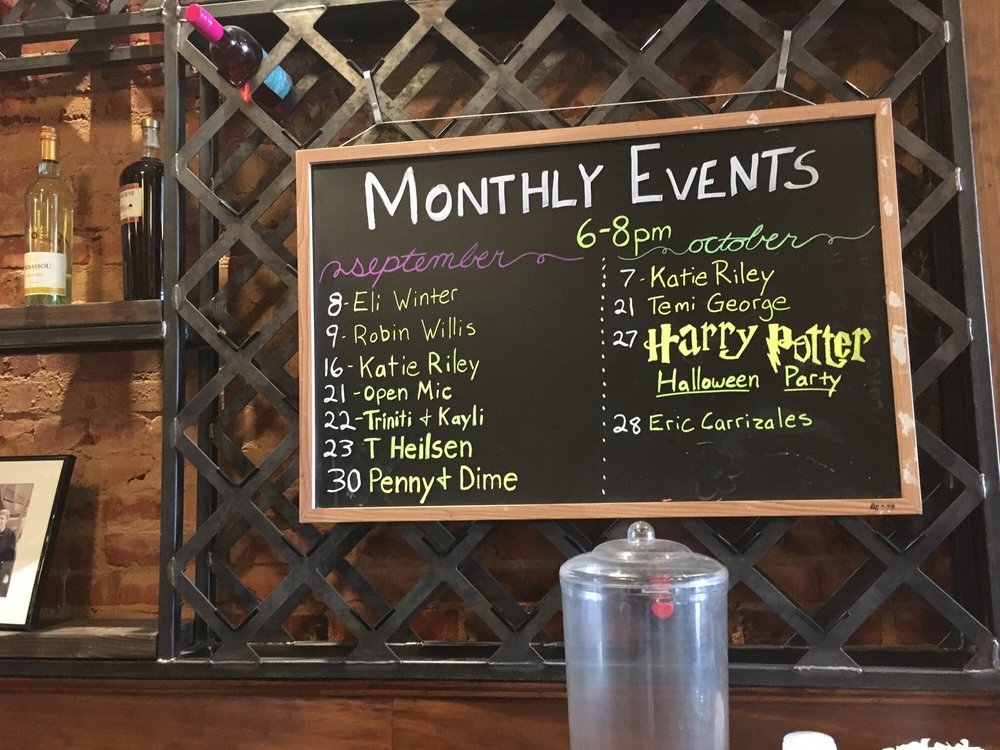 MONTHLY EVENTS
6-8pm
september
8- Eli Winter
9- Robin Willis
16- Katie Riley
21- Open Mic
22- Triniti & Kayli
23 T Heilsen
30 Penny & Dime
october
7- Katie Riley
21 Temi George
27 Harry Potter
Halloween Party
28 Eric Carrizales